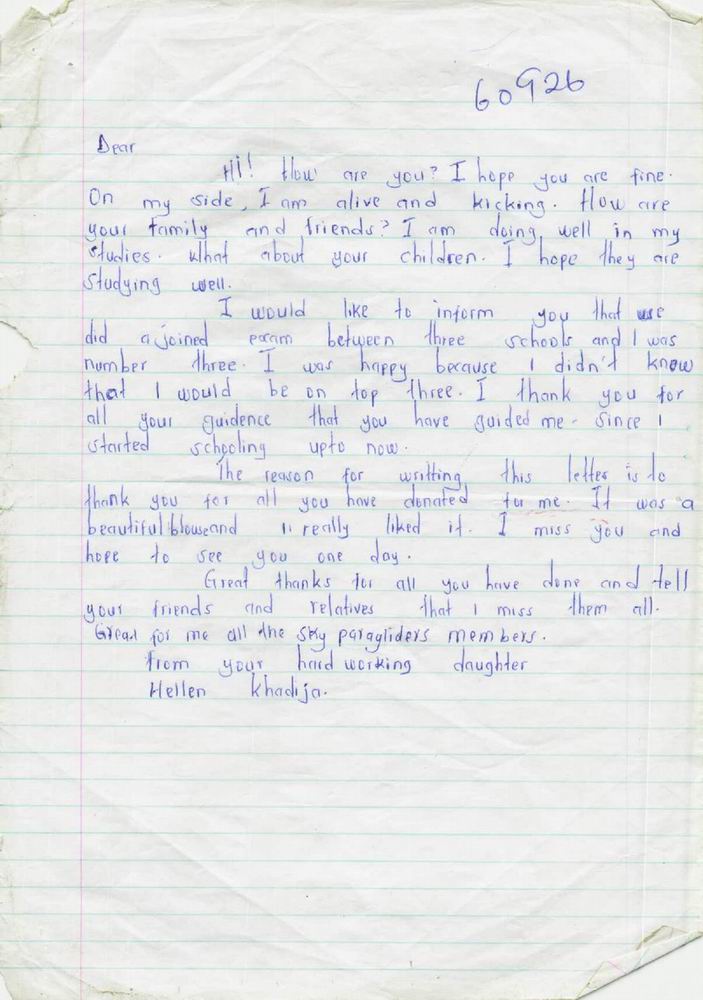 60926
Dear
Hi! How are you? I hope you are fine.
On my side, I am alive and kicking. How are
your family and friends? I am doing well in my
studies. What about your children. I hope they are
studying well.
I would like to inform you that we
did a joined exam between three schools and I was
number three. I was happy because I didn't know
that I would be on top three. I thank you for
all your guidence that you have guided me. Since I
started schooling upto now.
The reason for writting this letter is to
thank you for all you have donated for me. It was a
beautiful blouse and I really liked it. I miss you and
hope to see you one day.
Great thanks for all you have done and tell
your friends and relatives that I miss them all.
Great for me all the sky paragliders members.
From your hard working daughter
Hellen Khadija.